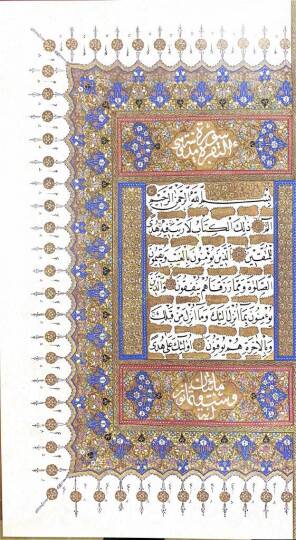 سورة
البقرة مدنية
بِسْمِ اللَّهِ الرَّحْمَنِ الرَّحِيمِ
الم ذَلِكَ الْكِتَابُ لَا رَيْبَ فِيهِ هُدًى
لِلْمُتَّقِينَ الَّذِينَ يُؤْمِنُونَ بِالْغَيْبِ وَيُقِيمُونَ
الصَّلٰوةَ وَمِمَّا رَزَقْنَاهُمْ يُنْفِقُونَ وَالَّذِينَ
يُؤْمِنُونَ بِمَا أُنْزِلَ إِلَيْكَ وَمَا أُنْزِلَ مِنْ قَبْلِكَ
وَبِالْآخِرَةِ هُمْ يُوقِنُونَ أُولَئِكَ عَلَى هُدًى
مائتان
وست وثمانون
آية